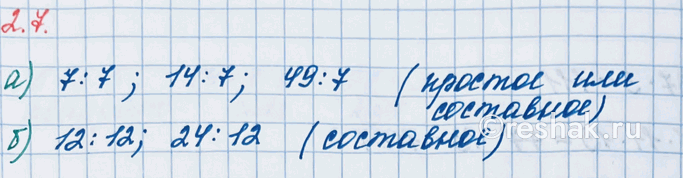 2.7.
а) 7:7; 14:7; 49:7 (простое или
составное)
б) 12:12; 24:12 (составной)
©reshak.ru